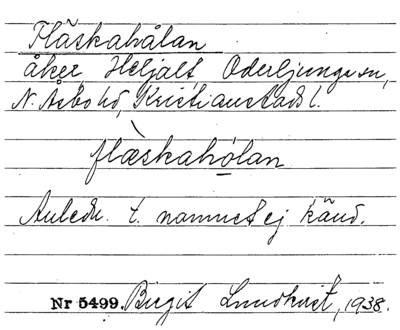 Fläskahålan
åker, Heljalt, Oderljunga sn,
N. Åsbo hd, Kristianstads l.
flàskahólan
Anledn. t. namnet ej känd.
Nr 5499. Birgit Lundkvist, 1938.